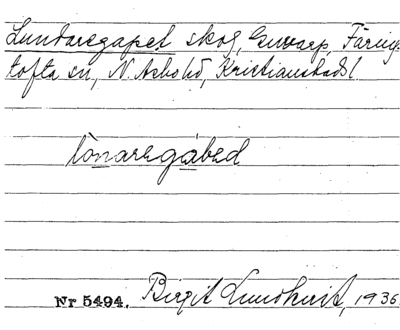 Lundaregapet skog, Gunarp, Färings
tofta sn, N. Åsbo hd, Kristianstads l
lònaregábed
Nr 5494. Birgit Lundkvist, 1936